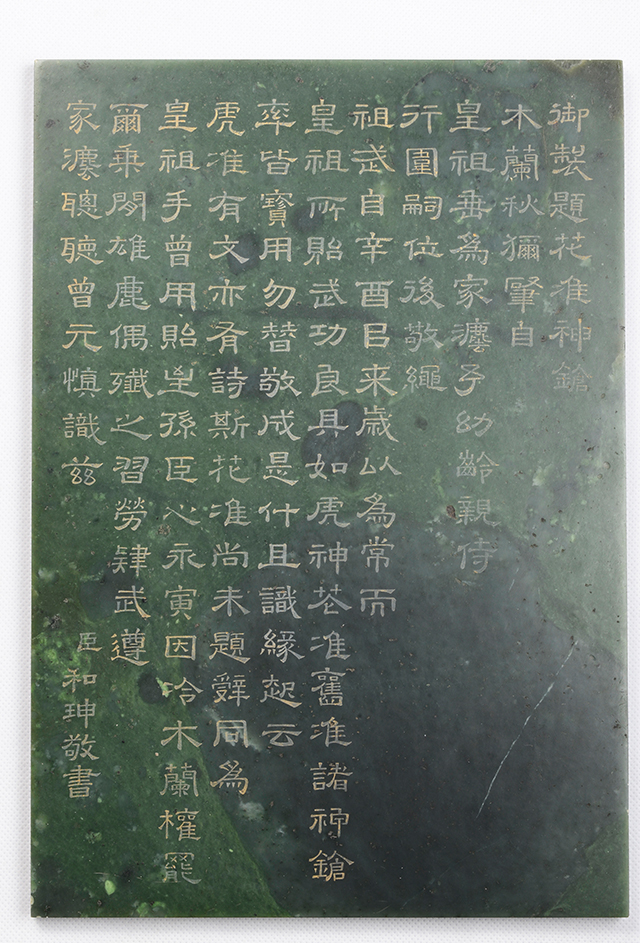 御製題花准神鎗
木蘭秋獮肇自
皇祖垂為家灋予幼齡親侍
行圍嗣位後敬繩
祖武自辛酉㠯来歲以為常而
皇祖所貽武功良具如虎神花准舊准諸神鎗
率皆寶用勿替敬成是什且識緣起云
虎准有文亦有詩斯花准尚未題辤同為
皇祖手曾用貽孫臣心永寅因唫木蘭權罷
爾乗閒雄鹿偶殲之習勞肄武遵
家灋聰聽曾元慎識茲
臣和珅敬書